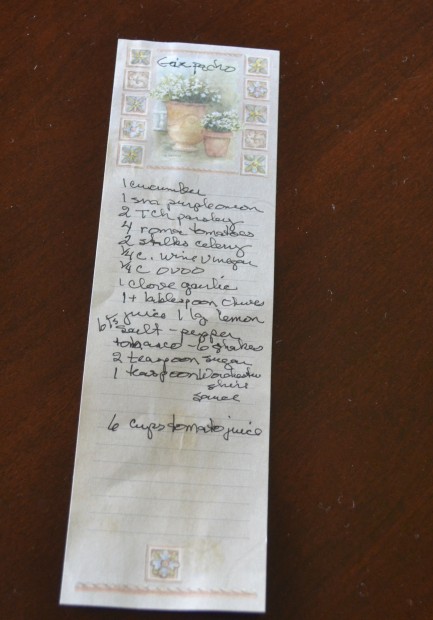 Gazpacho
1 cucumber
1 sm purple onion
2 T ch parsley
4 roma tomatoes
2 stalks celery
1/4 c. wine vinegar
1/4 c OVOO
1 clove garlic
1+ tablespoon chives
juice 1 lg lemon
salt - pepper
tobasco - 6 shakes
2 teaspoon sugar
1 teaspoon Worchester
shire
sauce
6 cups tomato juice